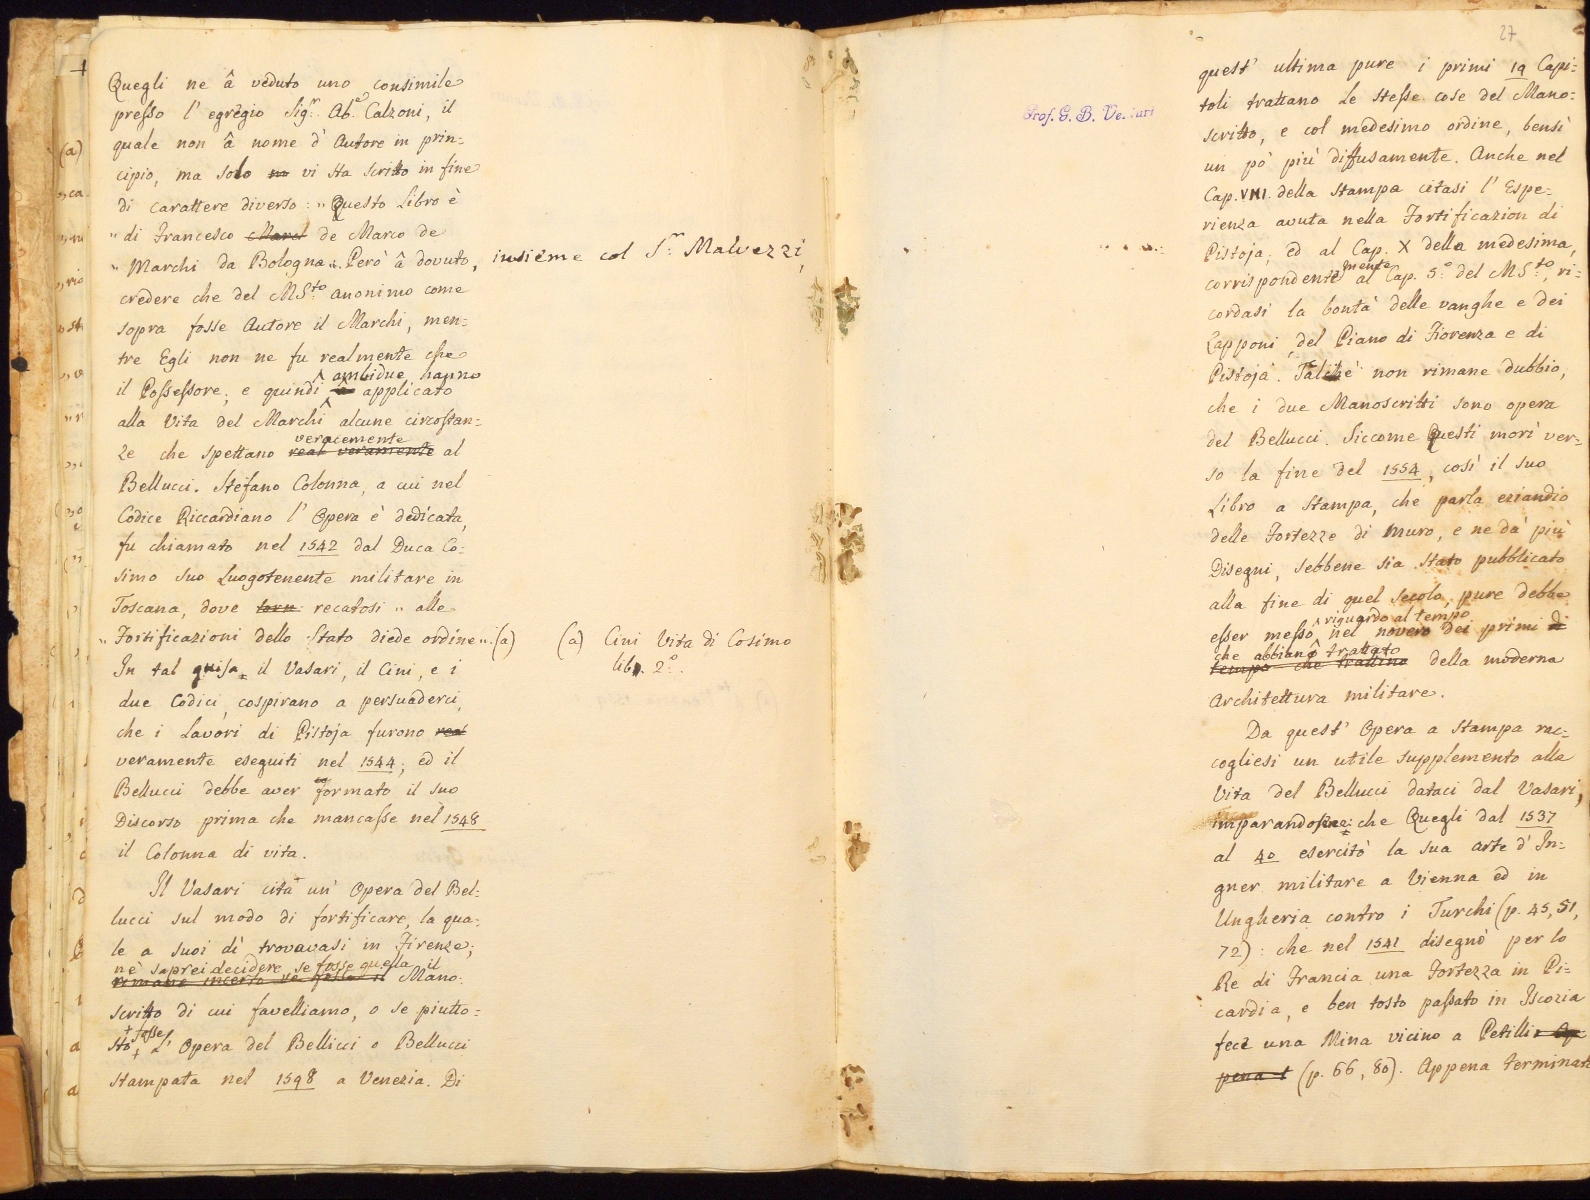 Quegli ne â veduto uno consimile
presso l' egregio Sig.r Ab.e Calzoni, il
quale non â nome d' Autore in prin=
cipio, ma solo vi sta scritto in fine
di carattere diverso: „ Questo Libro è
„ di Francesco Marcl de Marco de
„ Marchi da Bologna„. Però â dovuto, insieme col S.r Malvezzi,
credere che del MS.to anonimo come
sopra fosse Autore il Marchi, men=
tre Egli non ne fu realmente che
ambidue hanno
il Possessore, e quindi â applicato
alla Vita del Marchi alcune circostan=
veracemente
ze che spettano real veramente al
Bellucci. Stefano Colonna, a cui nel
Codice Riccardiano l' Opera è dedicata,
fu chiamato nel 1542 dal Duca Co=
simo suo Luogotenente militare in
Toscana, dove torn recatosi „ alle
„ Fortificazioni dello Stato diede ordine„.(a)
(a) Cini Vita di Cosimo
lib. 2.°
In tal guisa il Vasari, il Cini, e i
due Codici, cospirano a persuaderci,
che i Lavori di Pistoja furono real
veramente eseguiti nel 1544; ed il
Bellucci debbe aver formato il suo
Discorso prima che mancasse nel 1548
il Colonna di vita.
Il Vasari cita un' Opera del Bel=
lucci sul modo di fortificare, la qua=
le a suoi dì trovavasi in Firenze;
nè saprei decidere se fosse quella il
rimane incerto se fosse il Mano=
scritto di cui favelliamo, o se piutto=
+ fosse
sto + l' Opera del Bellicci o Bellucci
stampata nel 1598 a Venezia. Di
27
Prof. G. B. Venturi
quest' ultima pure i primi 19 Capi=
toli trattano le stesse cose del Mano=
scritto, e col medesimo ordine, bensì
un pò più diffusamente. Anche nel
Cap. VIII. della Stampa citasi l' Espe=
rienza avuta nella Fortificazion di
Pistoja; ed al Cap. X della medesima,
mente
corrispondente al Cap. 5.° del MS.to, ri=
cordasi la bontà delle vanghe e dei
Zapponi del Piano di Fiorenza e di
Pistoja. Talchè non rimane dubbio,
che i due Manoscritti sono opera
del Bellucci. Siccome Questi morì ver=
so la fine del 1554, così il suo
Libro a Stampa, che parla eziandio
delle Fortezze di muro, e ne dà più
Disegni, sebbene sia stato pubblicato
alla fine di quel secolo, pure debbe
riguardo al tempo
esser messo nel novero dei primi di
che abbiano trattato
tempo che trattino della moderna
Architettura militare.
Da quest' Opera a Stampa rac=
cogliesi un utile supplemento alla
Vita del Bellucci dataci dal Vasari,
che Quegli dal 1537
al 40 esercitò la sua arte d' In=
gner militare a Vienna ed in
Ungheria contro i Turchi (p. 45, 51,
72): che nel 1541 disegnò per lo
Re di Francia una Fortezza in Pi=
cardia, e ben tosto passato in Iscozia
fece una Mina vicino a Petilli Ap=
pena t (p. 66, 80). Appena terminat